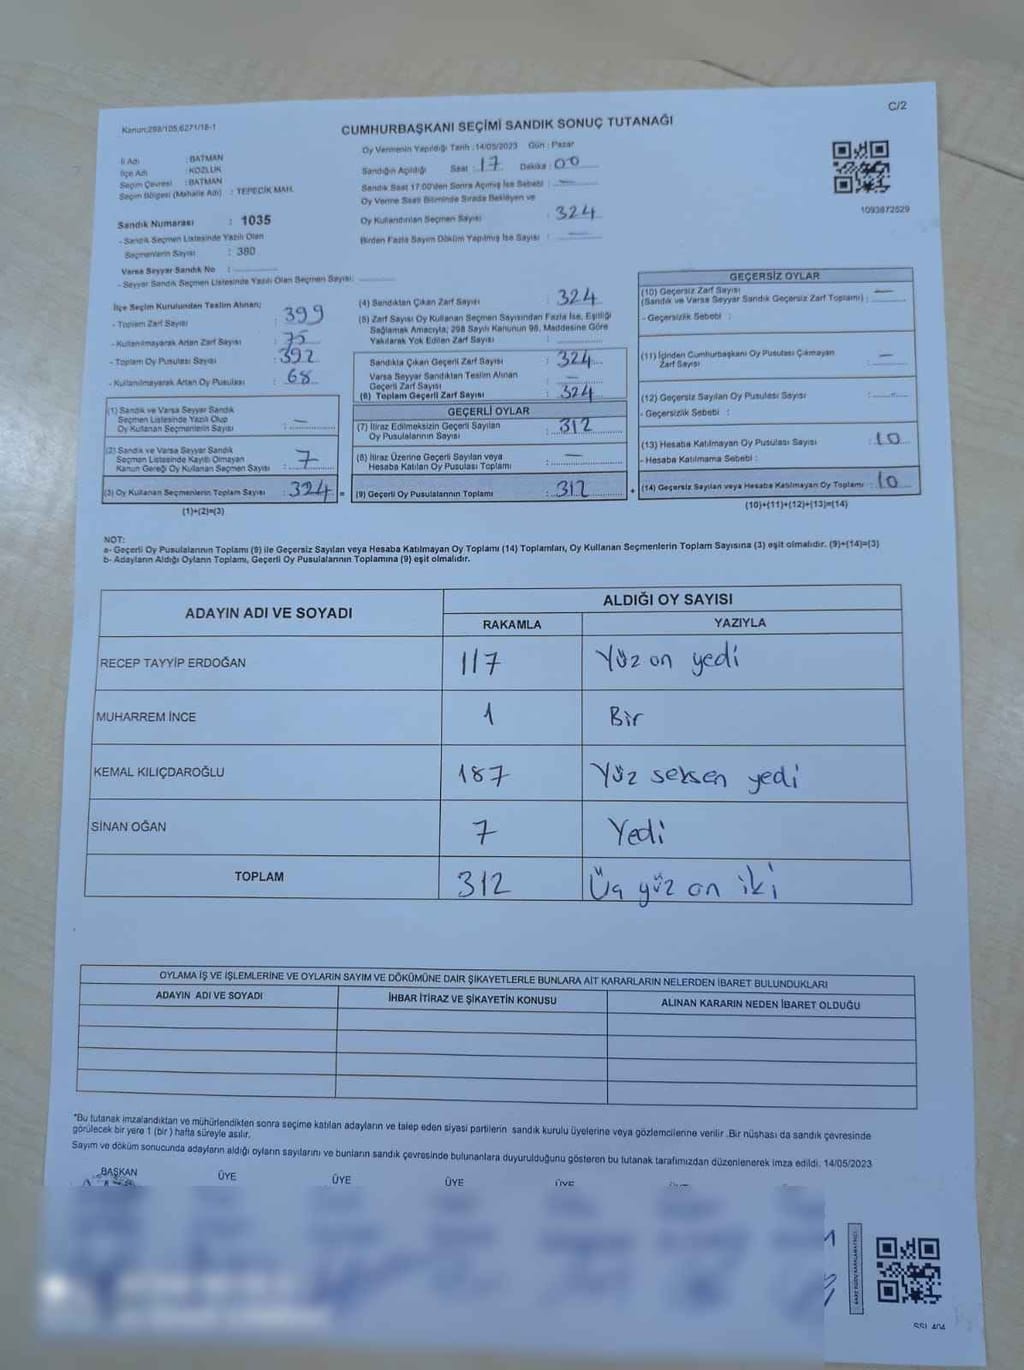 C/2
Kanun:298/105,6271/18-1
CUMHURBAŞKANI SEÇİMİ SANDIK SONUÇ TUTANAĞI
İl Adı : BATMAN
İlçe Adı : KOZLUK
Seçim Çevresi : BATMAN
Seçim Bölgesi (Mahalle Adı) : TEPECİK MAH.
Sandık Numarası : 1035
- Sandık Seçmen Listesinde Yazılı Olan
Seçmenlerin Sayısı : 380
Varsa Seyyar Sandık No :
- Seyyar Sandık Seçmen Listesinde Yazılı Olan Seçmen Sayısı:
Oy Vermenin Yapıldığı Tarih : 14/05/2023 Gün : Pazar
Sandığın Açıldığı Saat : 17 Dakika : 00
Sandık Saat 17:00'den Sonra Açılmış İse Sebebi : —
Oy Verme Saati Bitiminde Sırada Bekleyen ve
Oy Kullandırılan Seçmen Sayısı : 324
Birden Fazla Sayım Döküm Yapılmış İse Sayısı : —
1093872529
İlçe Seçim Kurulundan Teslim Alınan;
- Toplam Zarf Sayısı : 399
- Kullanılmayarak Artan Zarf Sayısı : 75
- Toplam Oy Pusulası Sayısı : 392
- Kullanılmayarak Artan Oy Pusulası : 68
(1) Sandık ve Varsa Seyyar Sandık
Seçmen Listesinde Yazılı Olup
Oy Kullanan Seçmenlerin Sayısı : —
(2) Sandık ve Varsa Seyyar Sandık
Seçmen Listesinde Kayıtlı Olmayan
Kanun Gereği Oy Kullanan Seçmen Sayısı : 7
(3) Oy Kullanan Seçmenlerin Toplam Sayısı : 324 =
(1)+(2)=(3)
(4) Sandıktan Çıkan Zarf Sayısı : 324
(5) Zarf Sayısı Oy Kullanan Seçmen Sayısından Fazla İse, Eşitliği
Sağlamak Amacıyla; 298 Sayılı Kanunun 98. Maddesine Göre
Yakılarak Yok Edilen Zarf Sayısı :
Sandıkta Çıkan Geçerli Zarf Sayısı : 324
Varsa Seyyar Sandıktan Teslim Alınan
Geçerli Zarf Sayısı : —
(6) Toplam Geçerli Zarf Sayısı : 324
GEÇERLİ OYLAR
(7) İtiraz Edilmeksizin Geçerli Sayılan
Oy Pusulalarının Sayısı : 312
(8) İtiraz Üzerine Geçerli Sayılan veya
Hesaba Katılan Oy Pusulası Toplamı : —
(9) Geçerli Oy Pusulalarının Toplamı : 312 +
GEÇERSİZ OYLAR
(10) Geçersiz Zarf Sayısı
(Sandık ve Varsa Seyyar Sandık Geçersiz Zarf Toplamı) : —
- Geçersizlik Sebebi :
(11) İçinden Cumhurbaşkanı Oy Pusulası Çıkmayan
Zarf Sayısı : —
(12) Geçersiz Sayılan Oy Pusulası Sayısı : —
- Geçersizlik Sebebi :
(13) Hesaba Katılmayan Oy Pusulası Sayısı : 10
- Hesaba Katılmama Sebebi :
(14) Geçersiz Sayılan veya Hesaba Katılmayan Oy Toplamı : 10
(10)+(11)+(12)+(13)=(14)
NOT:
a- Geçerli Oy Pusulalarının Toplamı (9) ile Geçersiz Sayılan veya Hesaba Katılmayan Oy Toplamı (14) Toplamları, Oy Kullanan Seçmenlerin Toplam Sayısına (3) eşit olmalıdır. (9)+(14)=(3)
b- Adayların Aldığı Oyların Toplamı, Geçerli Oy Pusulalarının Toplamına (9) eşit olmalıdır.
ADAYIN ADI VE SOYADI ALDIĞI OY SAYISI
RAKAMLA YAZIYLA
RECEP TAYYİP ERDOĞAN 117 Yüz on yedi
MUHARREM İNCE 1 Bir
KEMAL KILIÇDAROĞLU 187 Yüz seksen yedi
SİNAN OĞAN 7 Yedi
TOPLAM 312 Üç yüz on iki
OYLAMA İŞ VE İŞLEMLERİNE VE OYLARIN SAYIM VE DÖKÜMÜNE DAİR ŞİKAYETLERLE BUNLARA AİT KARARLARIN NELERDEN İBARET BULUNDUKLARI
ADAYIN ADI VE SOYADI İHBAR İTİRAZ VE ŞİKAYETİN KONUSU ALINAN KARARIN NEDEN İBARET OLDUĞU
*Bu tutanak imzalandıktan ve mühürlendikten sonra seçime katılan adayların ve talep eden siyasi partilerin sandık kurulu üyelerine veya gözlemcilerine verilir. Bir nüshası da sandık çevresinde
görülecek bir yere 1 (bir) hafta süreyle asılır.
Sayım ve döküm sonucunda adayların aldığı oyların sayılarını ve bunların sandık çevresinde bulunanlara duyurulduğunu gösteren bu tutanak tarafımızdan düzenlenerek imza edildi. 14/05/2023
BAŞKAN ÜYE ÜYE ÜYE ÜYE